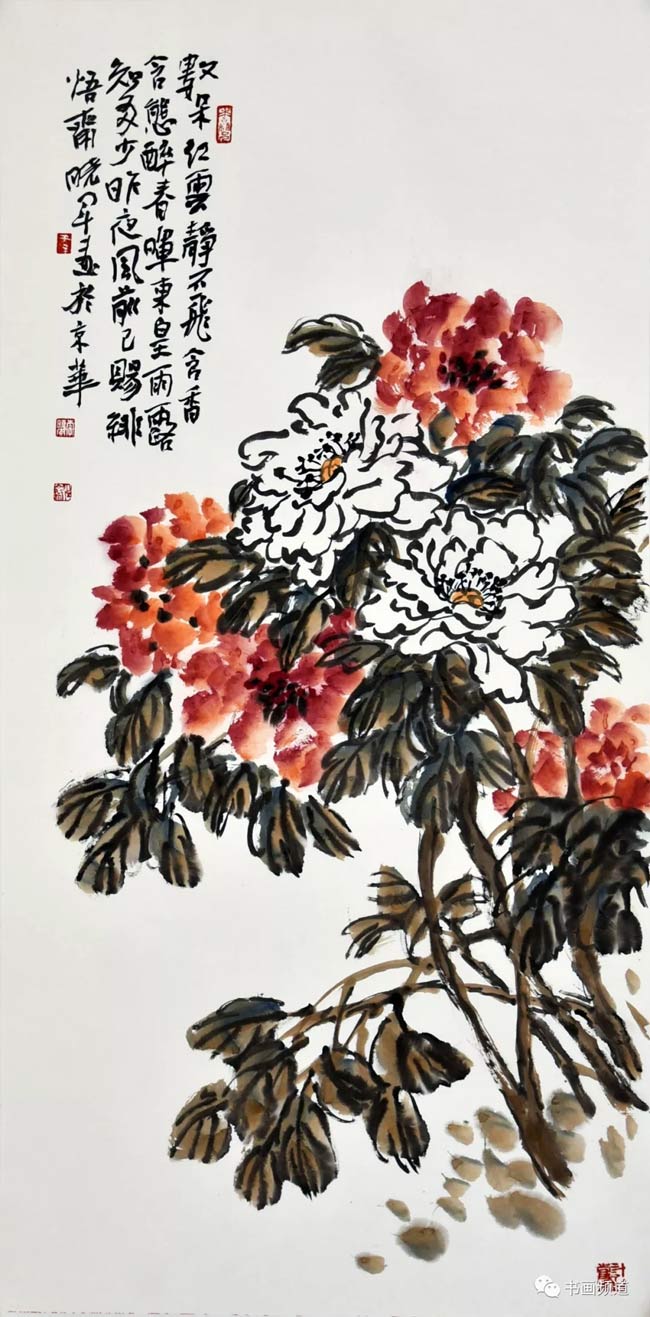 數朵红雲靜不飛含香
含態醉春暉東皇雨露
知多少昨夜風前已賜緋
悟齋晓军畫於京華
书画频道